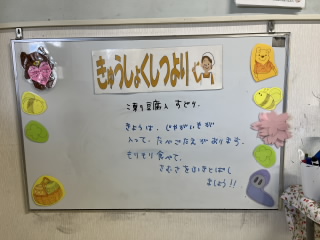 きゅうしょくしつより
凍り豆腐入 すどり。
きょうは、じゃがいもが
入って、たべごたえがあります。
もりもり食べて、
さむさをふきとばし
ましょう!!